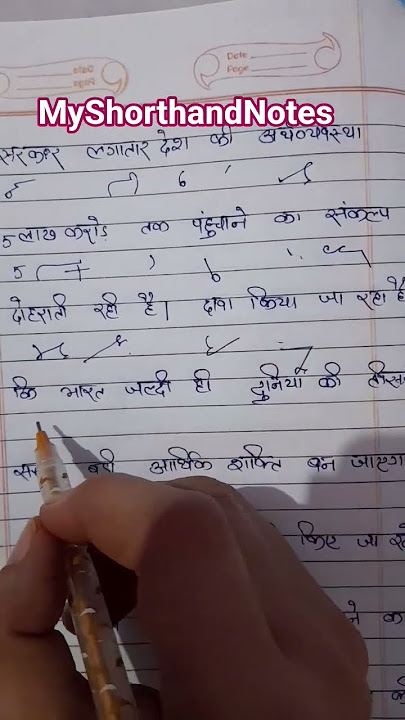 Date
Page
MyShorthandNotes
सरकार लगातार देश की अर्थव्यवस्था
5 लाख करोड़ तक पहुंचाने का संकल्प
दोहराती रही है। दावा किया जा रहा है
कि भारत जल्दी ही दुनिया की
बड़ी आर्थिक शक्ति बन जाएगा
किए जा रहे
ने क